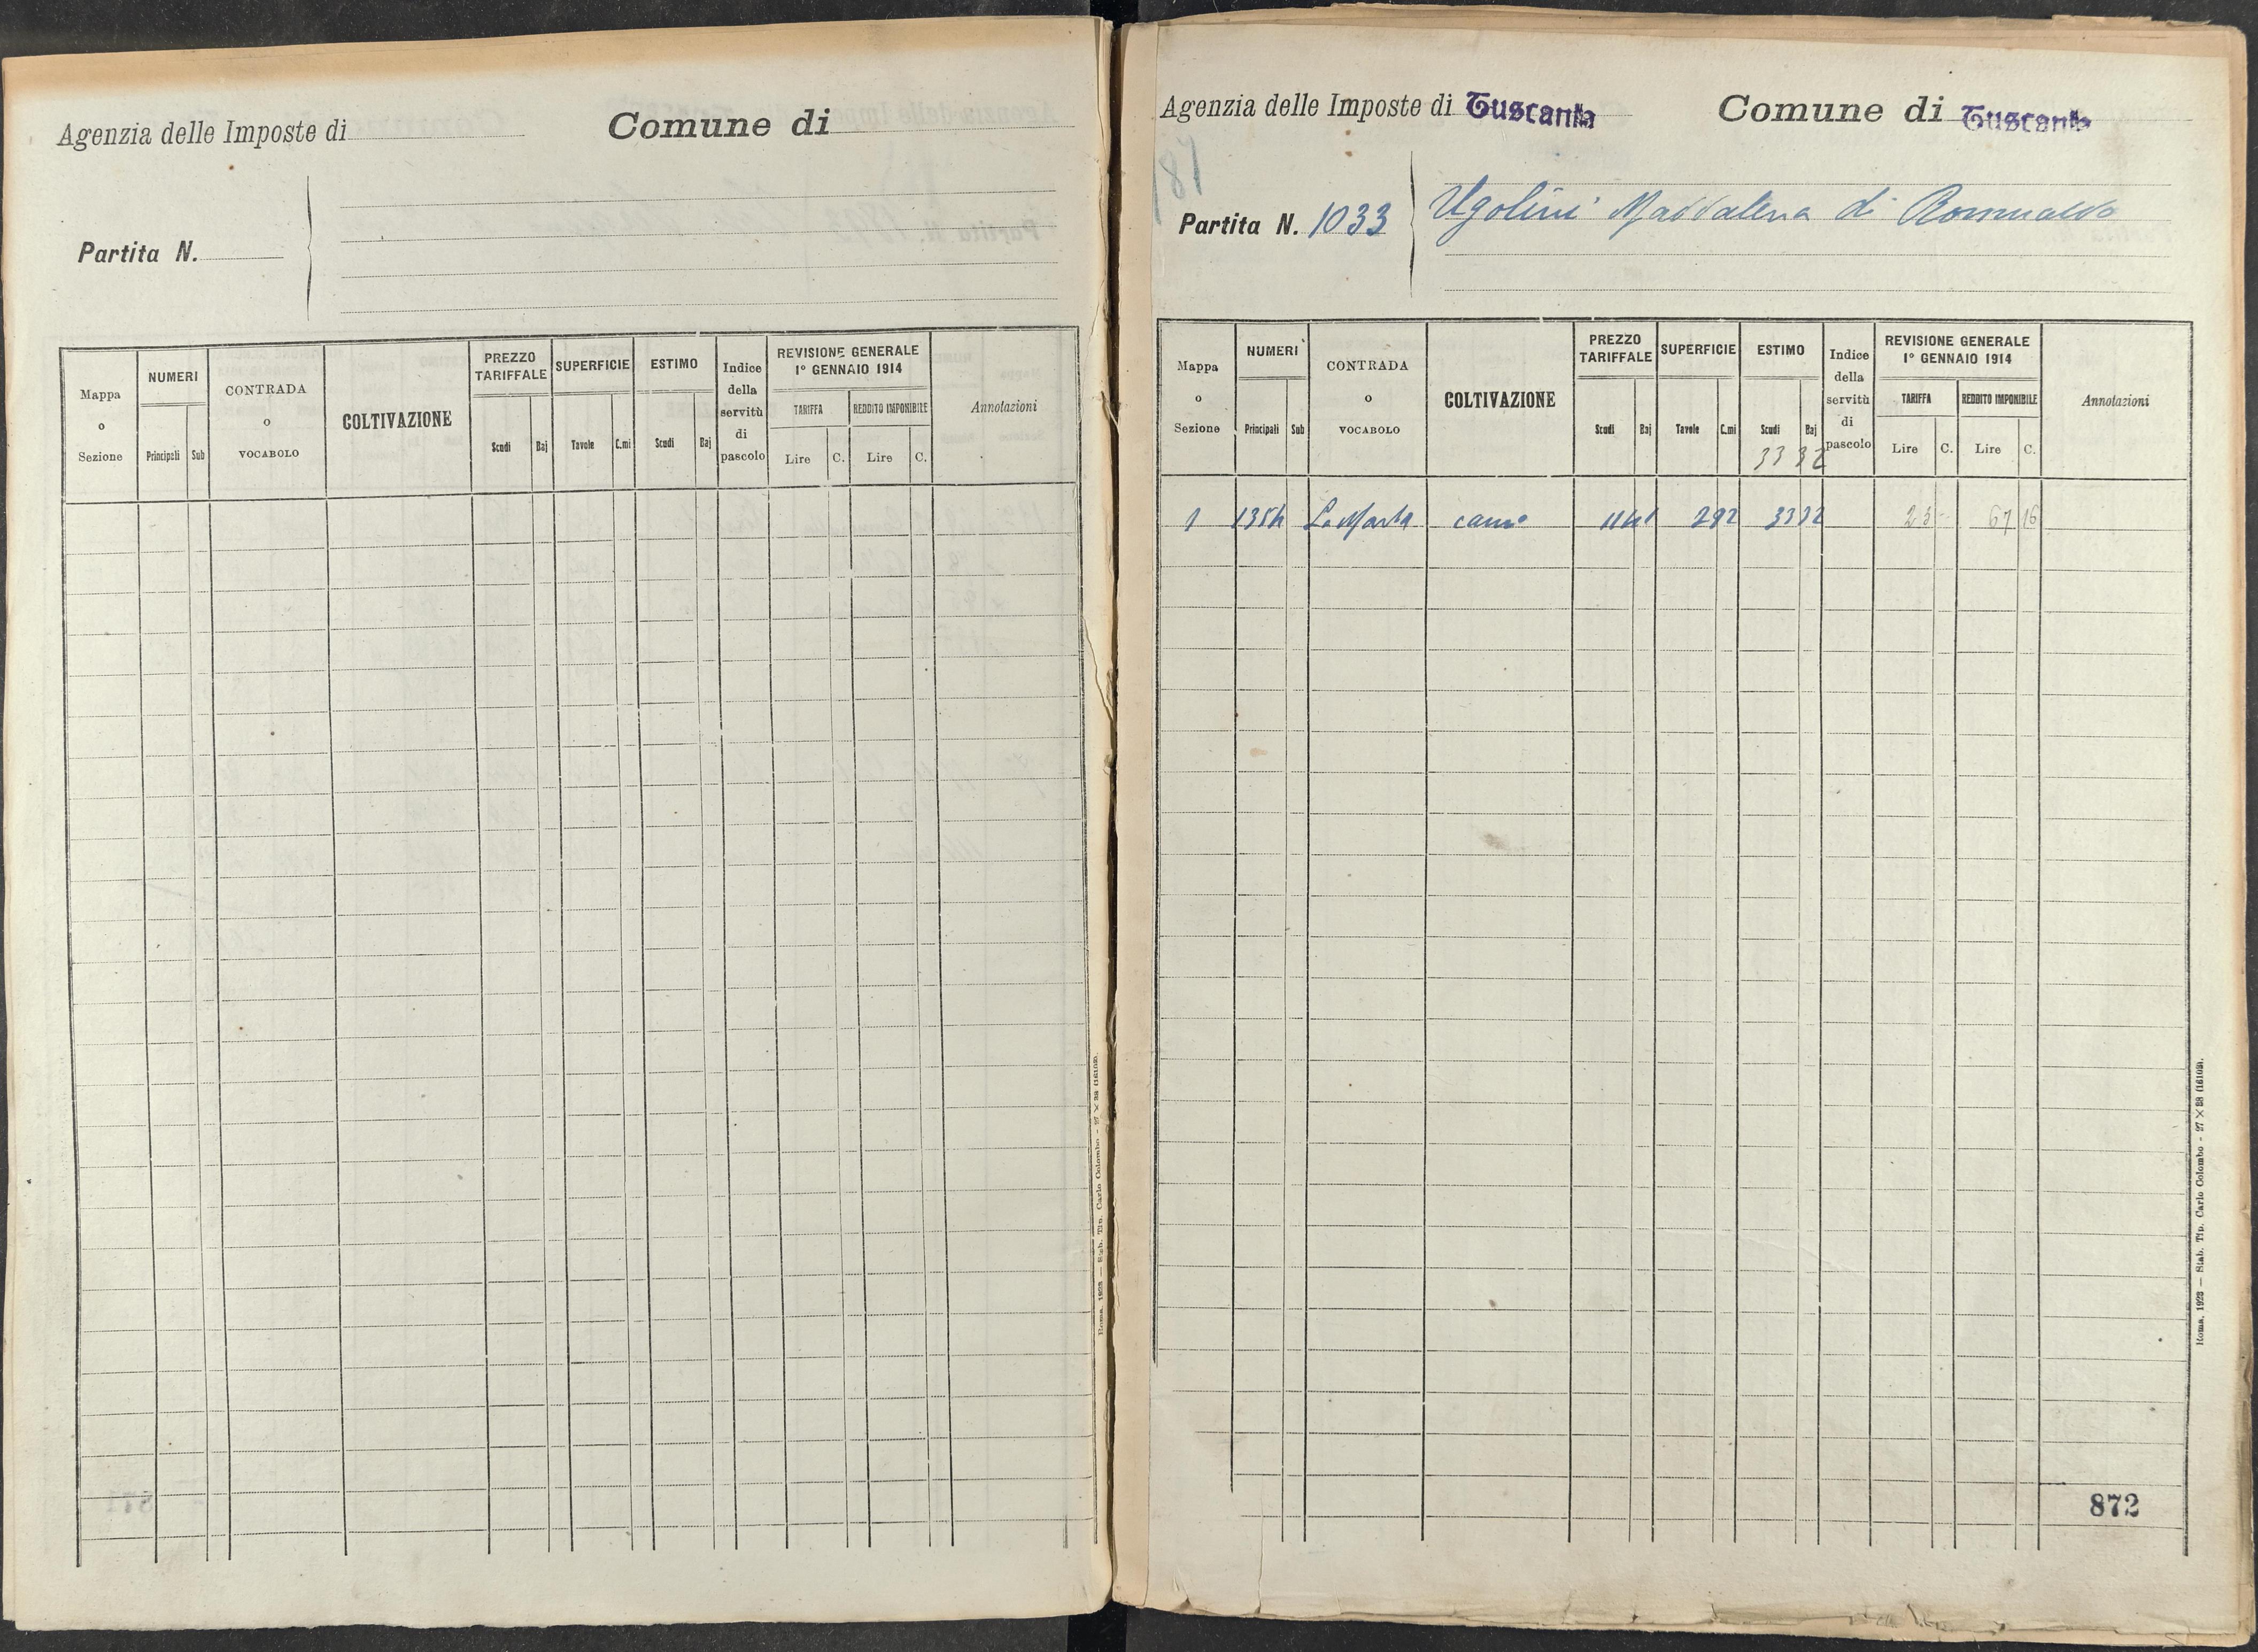 Agenzia delle Imposte di
Comune di
Partita N.
Mappa o Sezione
NUMERI
Principali
Sub
CONTRADA o VOCABOLO
COLTIVAZIONE
PREZZO TARIFFALE
Scudi
Baj
SUPERFICIE
Tavole
C.mi
ESTIMO
Scudi
Baj
Indice della servitù di pascolo
REVISIONE GENERALE
1° GENNAIO 1914
TARIFFA
Lire
C.
REDDITO IMPONIBILE
Lire
C.
Annotazioni
Roma, 1923 — Stab. Tip. Carlo Colombo - 27 × 38 (16102).
Agenzia delle Imposte di Tuscania
Comune di Tuscania
187
Partita N. 1033
Ugolini Maddalena di Romualdo
Mappa o Sezione
NUMERI
Principali
Sub
CONTRADA o VOCABOLO
COLTIVAZIONE
PREZZO TARIFFALE
Scudi
Baj
SUPERFICIE
Tavole
C.mi
ESTIMO
Scudi
Baj
33 32
Indice della servitù di pascolo
REVISIONE GENERALE
1° GENNAIO 1914
TARIFFA
Lire
C.
REDDITO IMPONIBILE
Lire
C.
Annotazioni
1 La Marta 292 3332 23 - 67 16
872
Roma, 1923 — Stab. Tip. Carlo Colombo - 27 × 38 (16102).